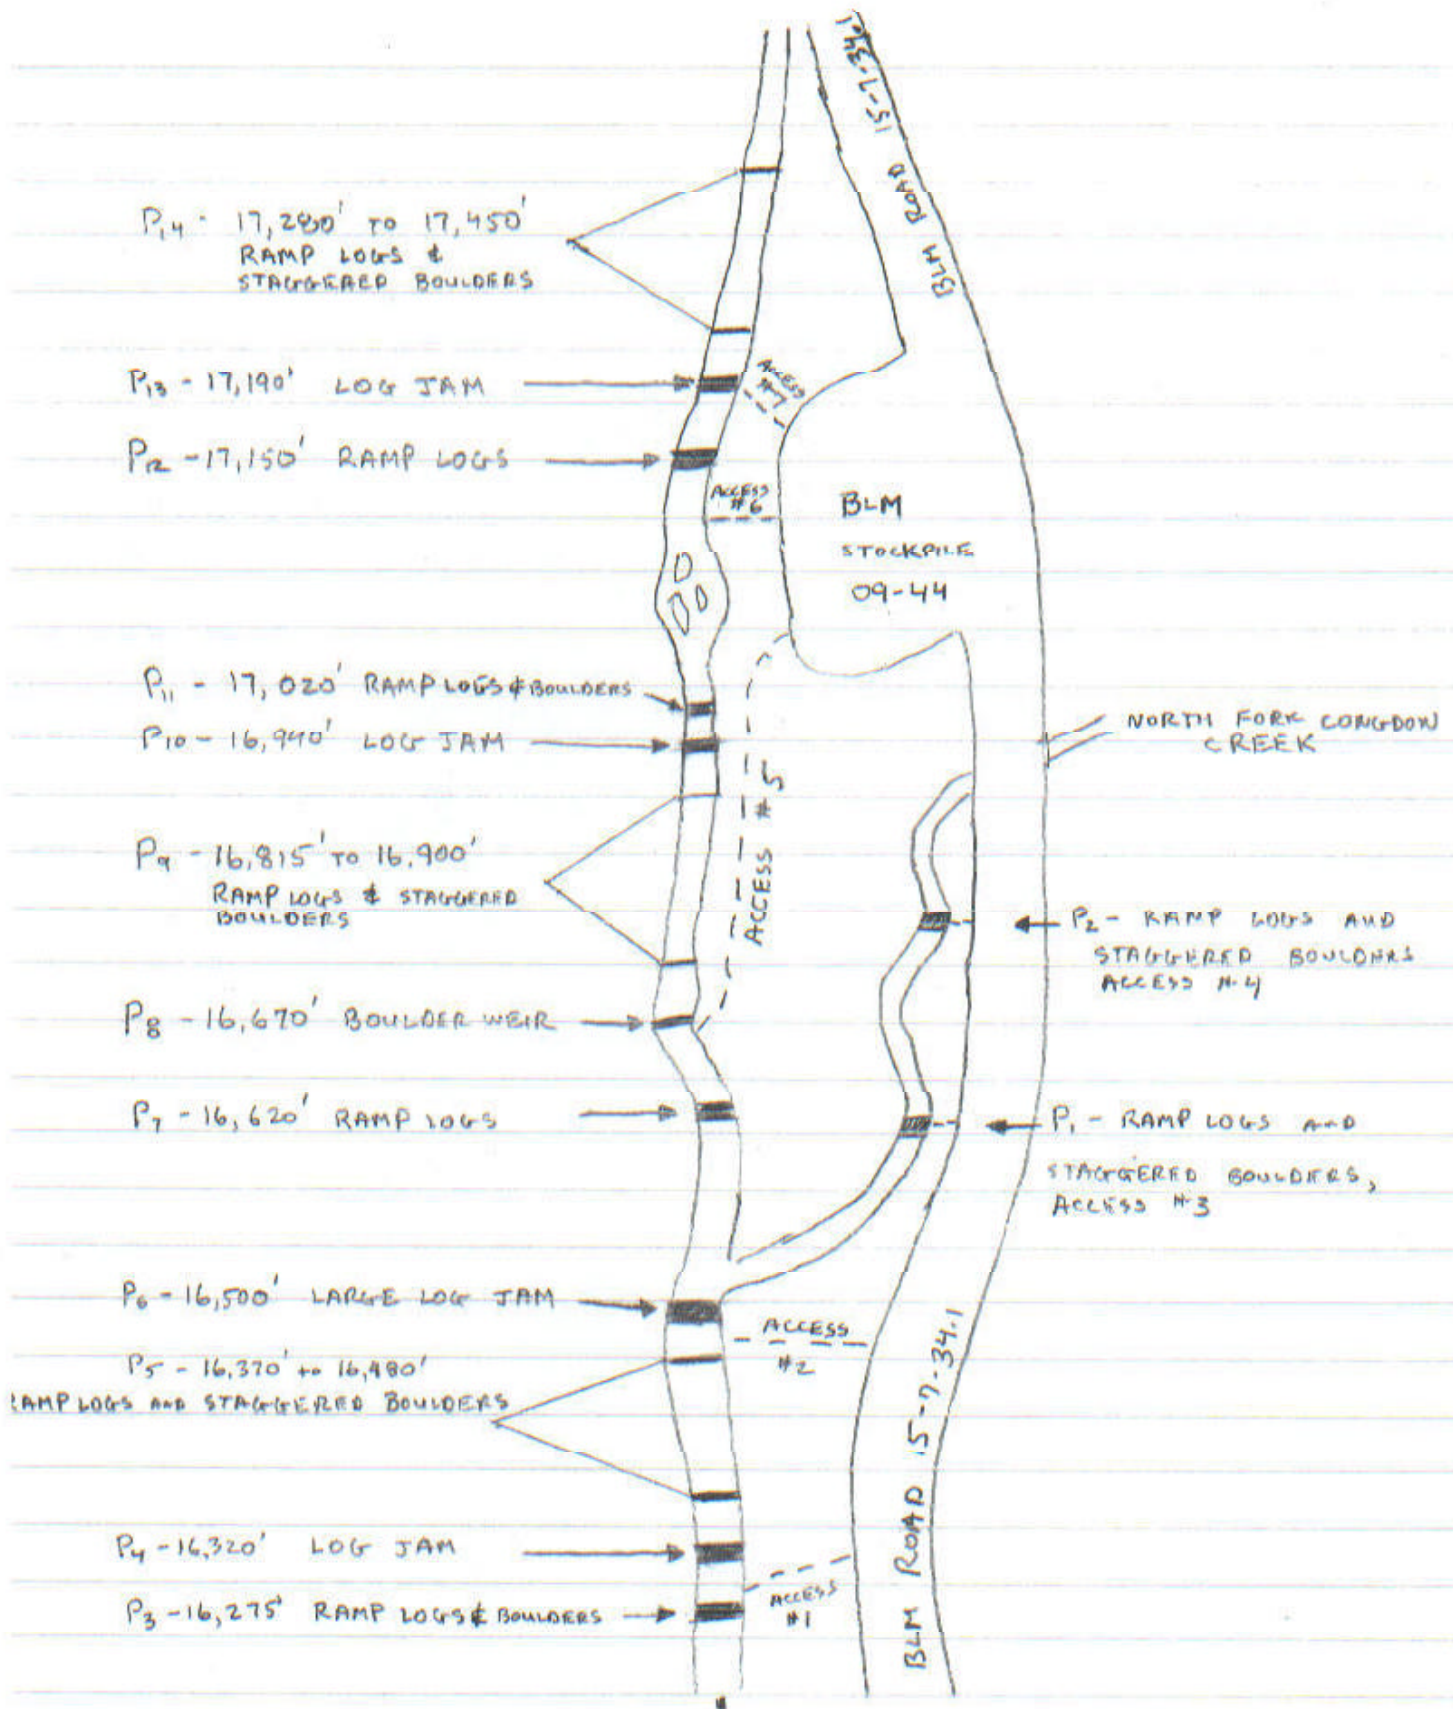 BLM ROAD 15-7-34.1
P14 - 17,280' TO 17,450'
RAMP LOGS &
STAGGERED BOULDERS
P13 - 17,190' LOG JAM
ACCESS
#7
P12 - 17,150' RAMP LOGS
ACCESS
#6
BLM
STOCKPILE
09-44
P11 - 17,020' RAMP LOGS & BOULDERS
P10 - 16,990' LOG JAM
NORTH FORK CONGDON
CREEK
ACCESS #5
P9 - 16,815' TO 16,900'
RAMP LOGS & STAGGERED
BOULDERS
P2 - RAMP LOGS AND
STAGGERED BOULDERS
ACCESS #4
P8 - 16,670' BOULDER WEIR
P7 - 16,620' RAMP LOGS
P1 - RAMP LOGS AND
STAGGERED BOULDERS,
ACCESS #3
P6 - 16,500' LARGE LOG JAM
ACCESS
#2
P5 - 16,370' to 16,480'
RAMP LOGS AND STAGGERED BOULDERS
BLM ROAD 15-7-34.1
P4 - 16,320' LOG JAM
P3 - 16,275' RAMP LOGS & BOULDERS
ACCESS
#1